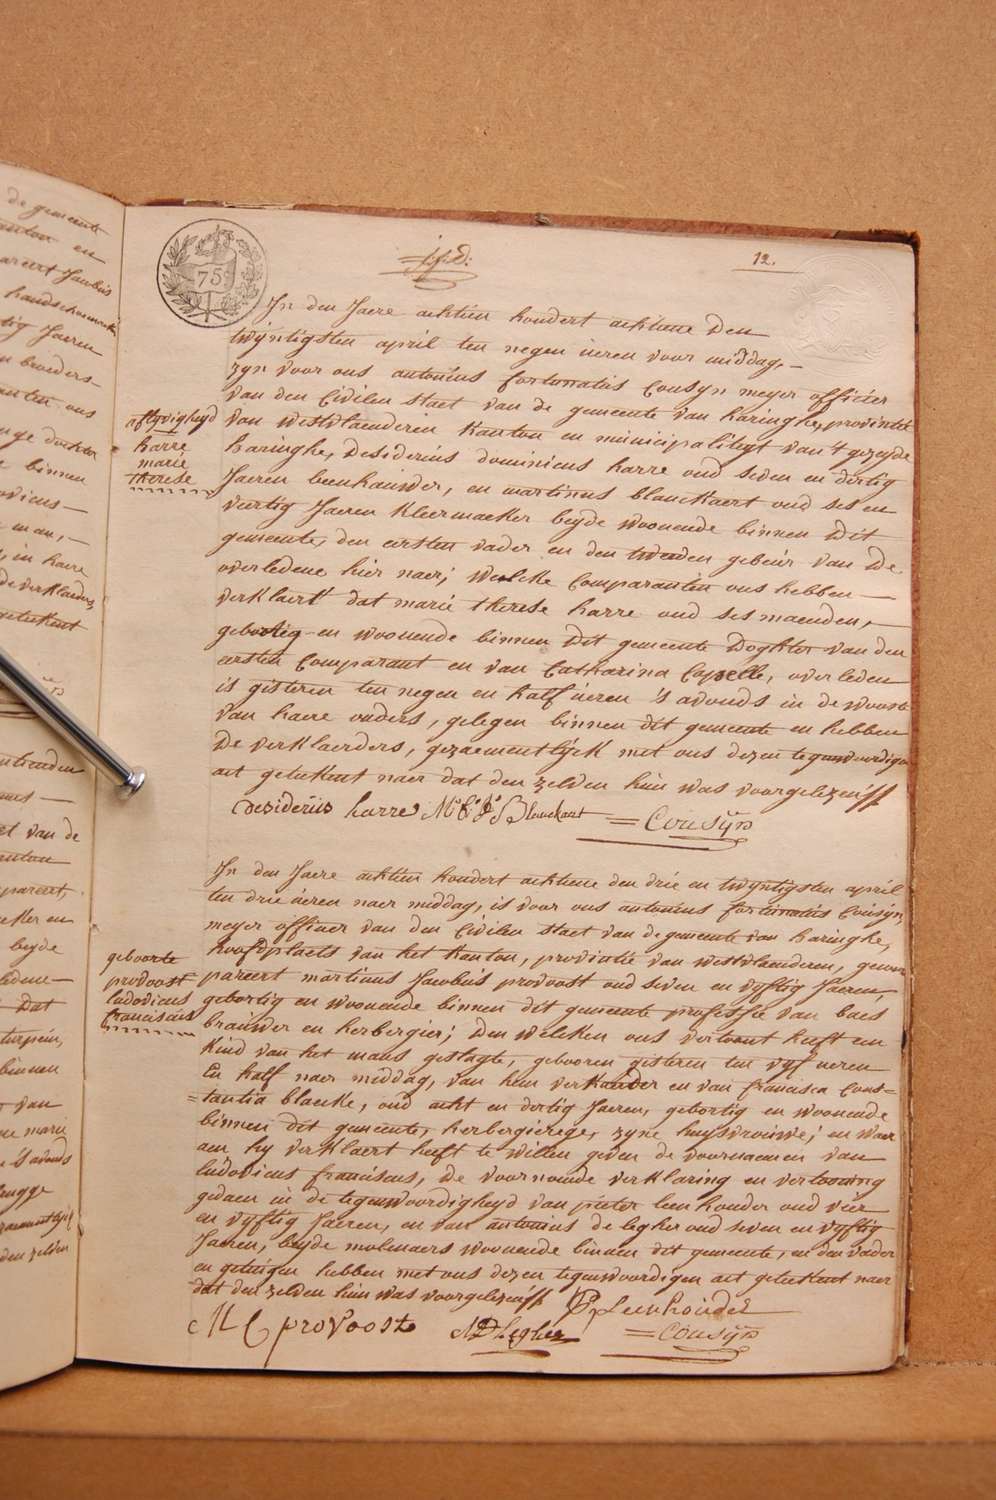 de gemeente
en
Jacobus
Jaeren
broeders-
ons
dochter
binnen
in haere
de verklaerders,
geteekent
van de
beyde
Dat
binnen
van
marie
'S avonds
den zelden
75
12.
In den Jaere achtien hondert achtiene Den
twijntigsten april ten negen ueren voor middag, –
zyn voor ons antonius fortunatus Cousyn meyer officier
van den Civilen staet van de gemeente van haringhe, provintie
van westvlaenderen Kanton en municipaliteyt van 't gezeyde
haringhe, Desiderius dominicus harre oud seven en dertig
Jaeren beenhauwer, en martinus blanckaert oud ses en
veertig Jaeren Kleermaeker beyde woonende binnen Dit
gemeente, den eersten vader en den tweeden gebeur van De
overledene hier naer; welcke Comparanten ons hebben —
verklaert dat marie therese harre oud ses maenden, —
gebortig en woonende binnen Dit gemeente Doghter van den
eersten Comparant en van Catharina Capelle, overleden
is gisteren ten negen en half ueren 's avonds in de wooste
van haere ouders, gelegen binnen dit gemeente en hebben
De verklaerders, gezaementlijck met ons dezen tegenwoordigen
act geteekent naer dat den zelden hun was voorgelezen
aflyvigheyd
harre
marie
therese
Desideriüs harre Blanckaert = Cousijn
In den Jaere achtien hondert achtiene den drie en twyntigsten april
ten drie ueren naer middag, is voor ons antonius fortunatus Cousijn,
meyer officier van den Civilen staet van de gemeente van haringhe,
hoofdplaets van het Kanton, provintie van westvlaenderen, gecom
pareert martinus Jacobus provoost oud seven en vyftig Jaeren,
gebortig en woonende binnen dit gemeente professie van baes
brauwer en herbergier; Den welcken ons vertoont heeft een
Kind van het mans geslagte, gebooren gisteren ten vyf ueren
En half naer middag, van hem verklaerder en van francisca Cons=
=tantia blaeke, oud acht en dertig Jaeren, gebortig en woonende
binnen dit gemeente, herbergierege, zyne huysvrouwe; en waer
aen hy verklaert heeft te willen geven de voornaemen van
ludovicus franciscus, De voornoemde verklaring en vertooning
gedaen in de tegenwoordigheyd van pieter leenhouder oud vier
en vyftig Jaeren, en van antonius de legher oud seven en vyftig
Jaeren, beyde molenaers woonende binnen dit gemeente, en den vader
en getuigen hebben met ons dezen tegenwoordigen act geteekent naer
dat den zelden hun was voorgelezen
geboorte
provoost
ludovicus
franciscus
Leenhouder
provoost Legher = Cousijn